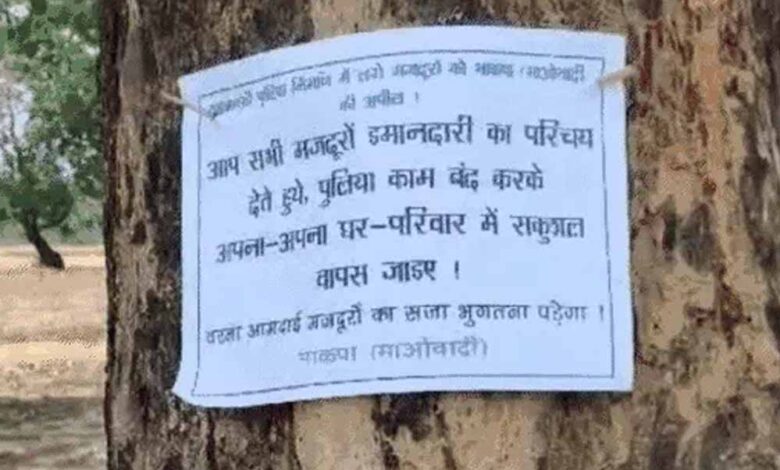 पुलिया निर्माण में लगे मजदूरों को भाकपा (माओवादी)
की अपील ।
आप सभी मजदूरों इमानदारी का परिचय
देते हुये, पुलिया काम बंद करके
अपना-अपना घर-परिवार में सकुशल
वापस जाइए ।
वरना आमदाई मजदूरों का सजा भुगतना पड़ेगा ।
भाकपा (माओवादी)